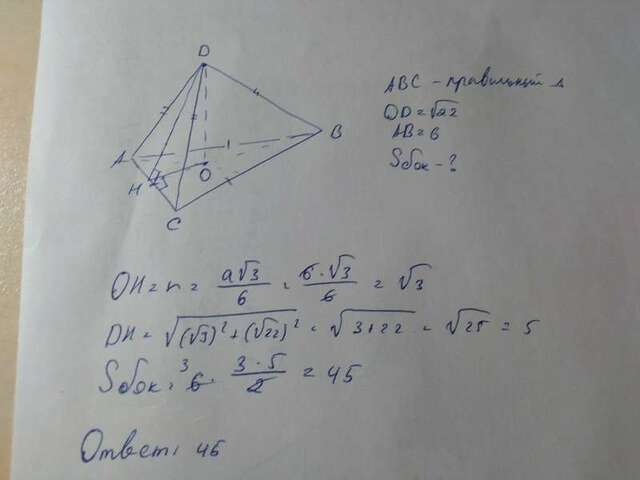 D
A
B
H
O
C
ABC - правильный Δ
OD = √22
AB = 6
Sбок - ?
OH = r = a√3/6 = 6·√3/6 = √3
DH = √((√3)² + (√22)²) = √(3+22) = √25 = 5
Sбок = 6 3 · 3·5/2 = 45
Ответ: 45